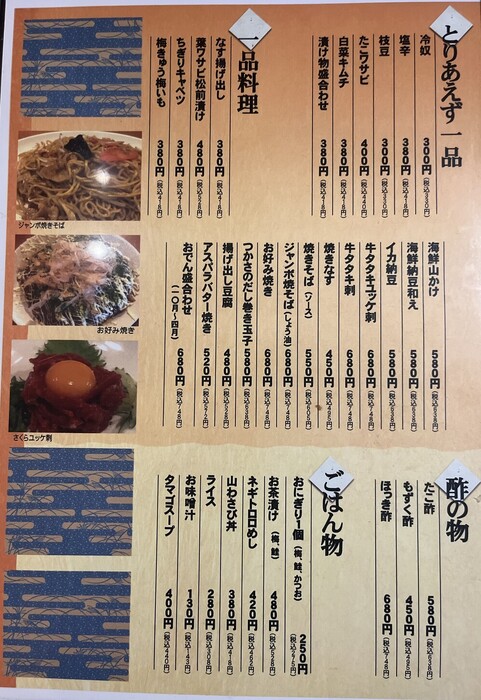 とりあえず一品
冷奴 300円(税込330円)
塩辛 380円(税込418円)
枝豆 300円(税込330円)
たこワサビ 400円(税込440円)
白菜キムチ 380円(税込418円)
漬け物盛合わせ 380円(税込418円)
一品料理
なす揚げ出し 380円(税込418円)
葉ワサビ松前漬け 480円(税込528円)
ちぎりキャベツ 380円(税込418円)
梅きゅう梅いも 380円(税込418円)
海鮮山かけ 580円(税込638円)
海鮮納豆和え 580円(税込638円)
イカ納豆 580円(税込638円)
牛タタキユッケ刺 680円(税込748円)
牛タタキ刺 680円(税込748円)
焼きなす 450円(税込495円)
焼きそば(ソース) 550円(税込605円)
ジャンボ焼そば(しょう油) 680円(税込748円)
お好み焼き 680円(税込748円)
つかさのだし巻き玉子 580円(税込638円)
揚げ出し豆腐 480円(税込528円)
アスパラバター焼き 520円(税込572円)
おでん盛合わせ 680円(税込748円)
(一〇月〜四月)
酢の物
たこ酢 580円(税込638円)
もずく酢 450円(税込495円)
ほっき酢 680円(税込748円)
ごはん物
おにぎり1個(梅、鮭、かつお) 250円(税込275円)
お茶漬け(梅、鮭) 480円(税込528円)
ネギトロ口めし 420円(税込462円)
山わさび丼 380円(税込418円)
ライス 280円(税込308円)
お味噌汁 130円(税込143円)
タマゴスープ 400円(税込440円)
ジャンボ焼きそば
お好み焼き
さくらユッケ刺